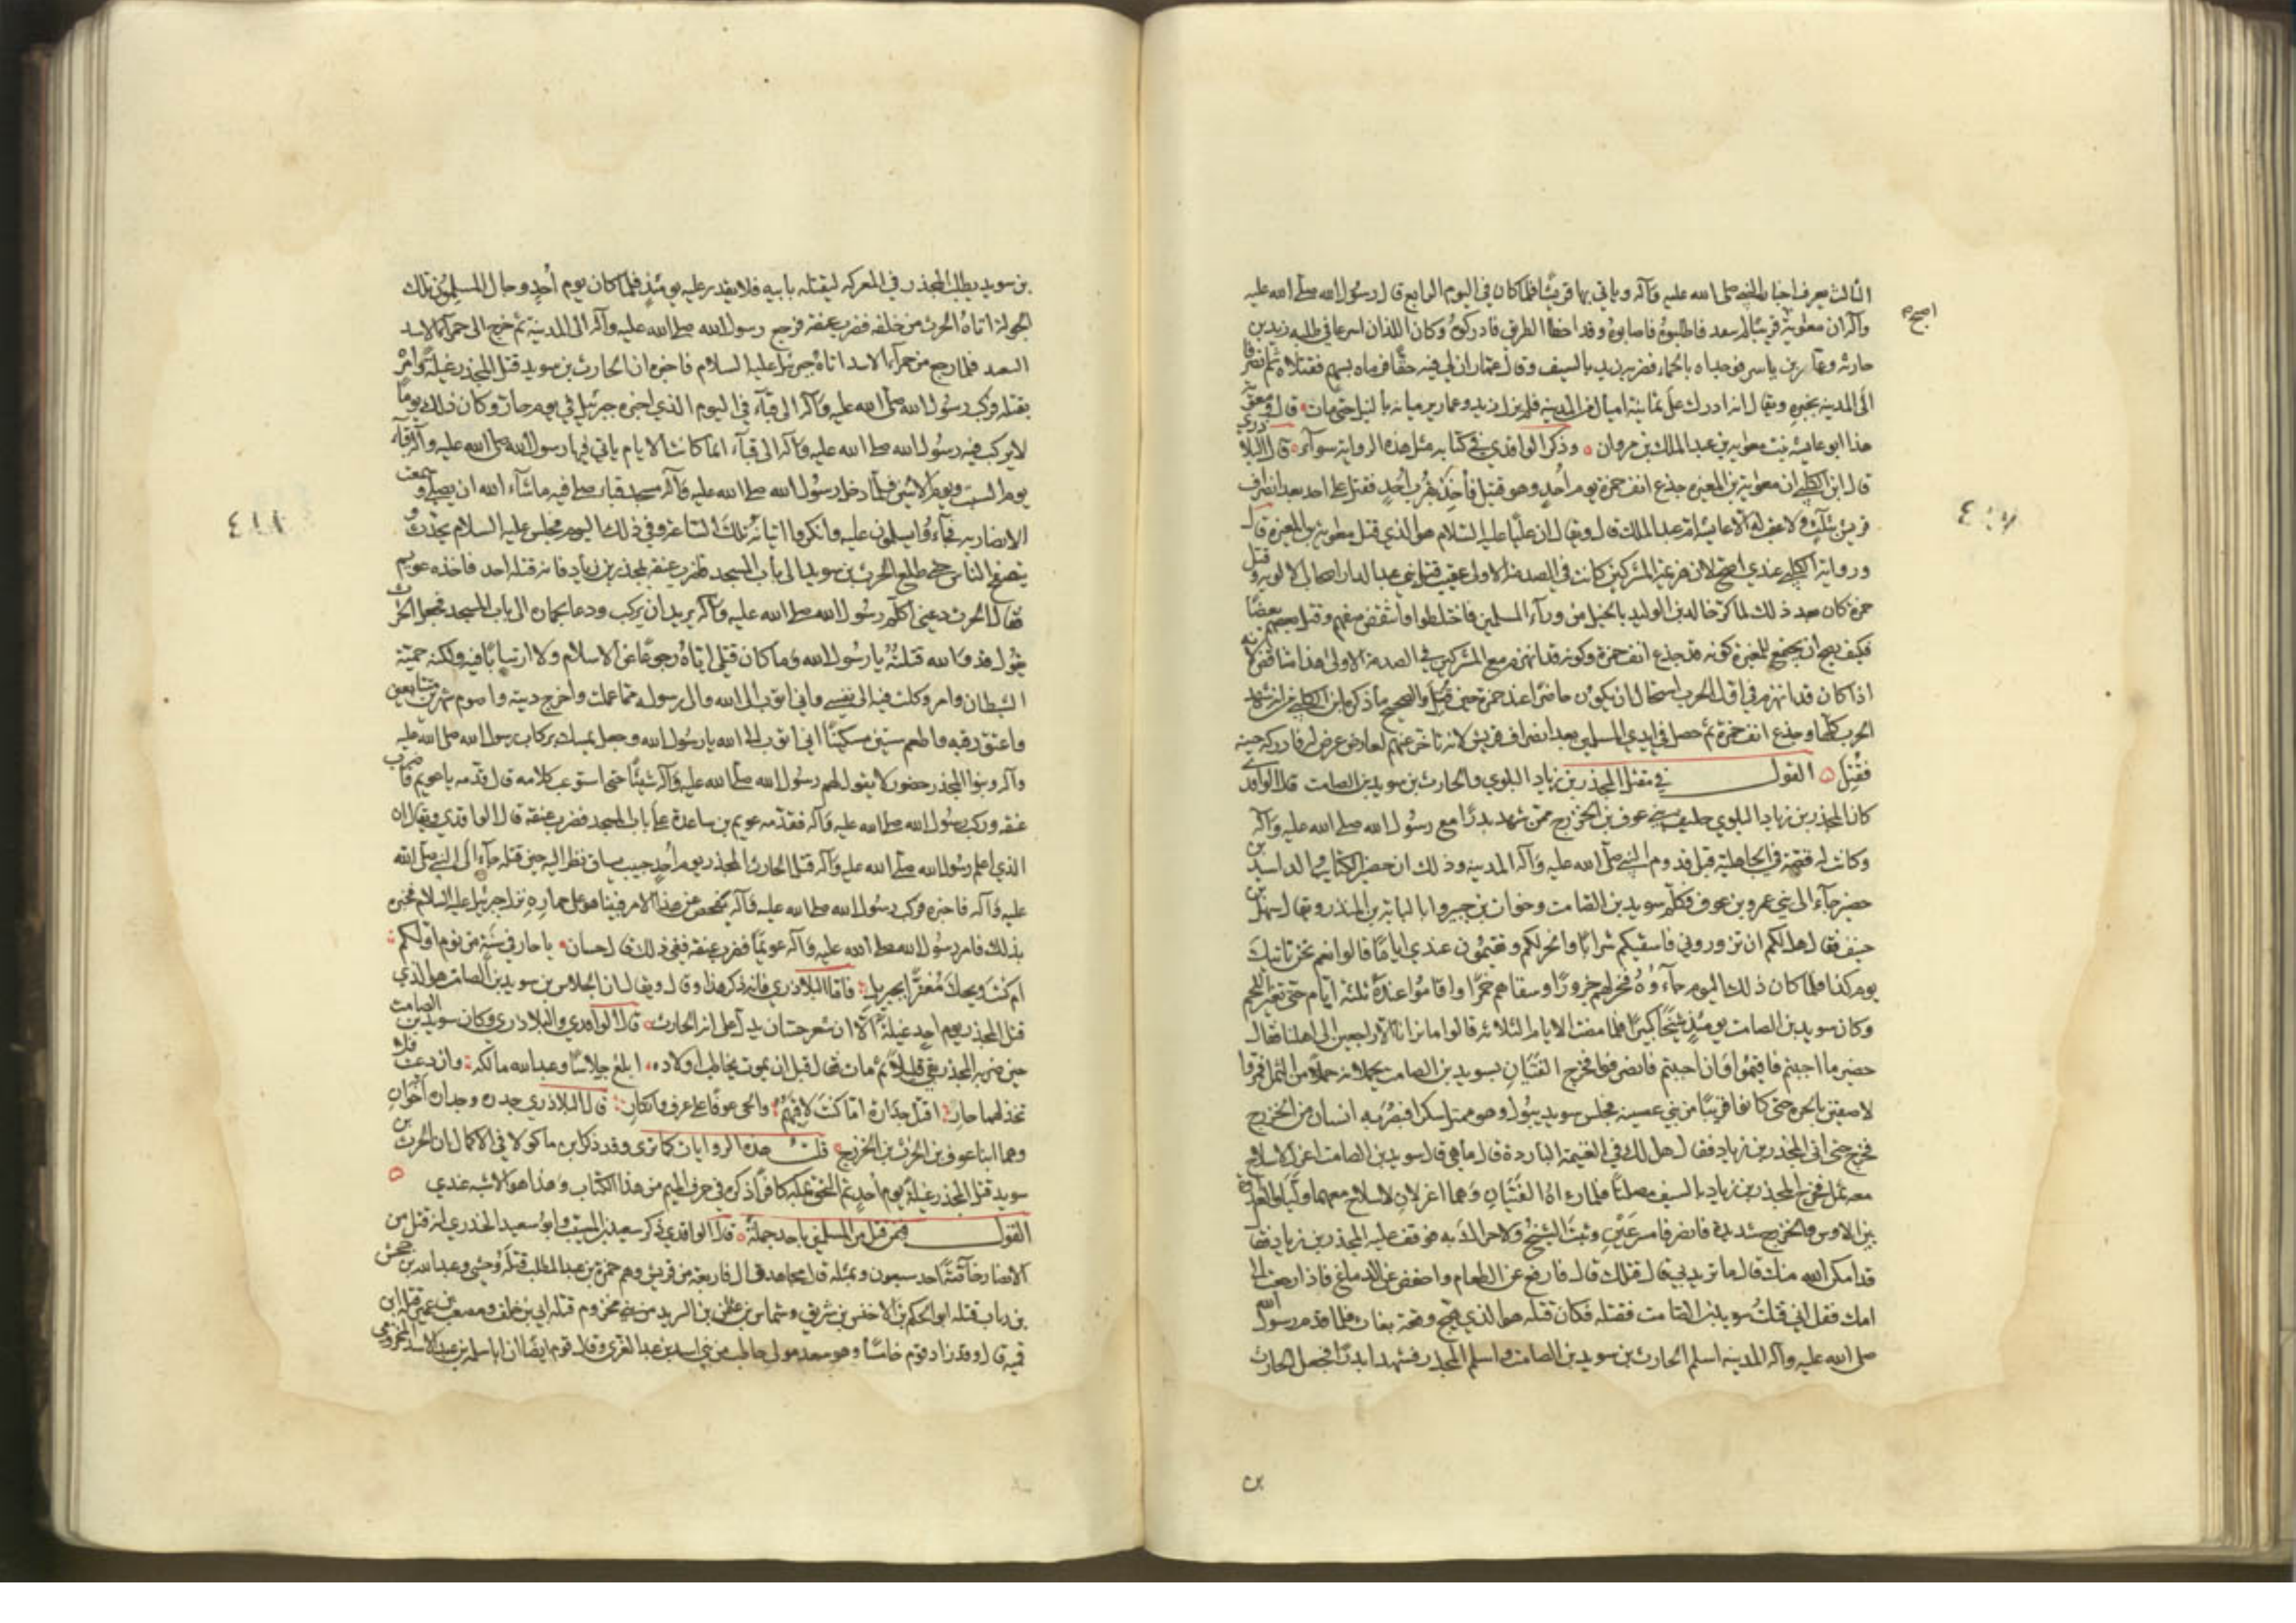 الثالث ليعرف اخبار النبي صلى الله عليه وآله وياتي بها قريشا فلما كان في اليوم الرابع قال رسول الله صلى الله عليه
وآله ان معوية قريبا لم يبعد فاطلبوه فاصابوه وقد اخطا الطريق فادركوه وكان اللذان اسرعا في طلبه زيد بن
حارثه وعمار بن ياسر فوجداه بالحماء فضربه زيد بالسيف وقال عمار ان لي فيه حقا فرماه بسهم فقتلاه ثم انصرفا
الى المدينه بخبره ويقال انه ادرك على ثمانية اميال من المدينه فلم يزل زيد وعمار يرميانه بالنبل حتى مات قال ومعوية
هذا ابو عايشه بنت معويه بن عبد الملك بن مروان وذكر الواقدي في كتابه مثل هذه الرواية سواء قال البلاذري
قال ابن الكلبي ان معوية بن المغيره جدع انف حمزة يوم أحد وهو قتيل فأخذ بقرب أحد فقتل على احد بعد انصراف
قريش بثلث ولا عقب له الا عايشه ام عبد الملك قال ويقال ان عليا عليه السلام هو الذي قتل معوية بن المغيرة قلت
ورواية الكلبي عندي اصح لان هزيمة المشركين كانت في الصدمة الاولى عقيب قتل بني عبد الدار اصحاب الالويه وقتل
حمزة كان بعد ذلك لما كر خالد بن الوليد بالخيل من ورآء المسلمين فاختلطوا وانتقض صفهم وقتل بعضهم بعضا
فكيف يصح ان يجتمع للمغيرة كونه قد جدع انف حمزة وكونه قد انهزم مع المشركين في الصدمة الاولى هذا متناقض لانه
اذا كان قد انهزم في اول الحرب استحال ان يكون حاضرا عند حمزة حين قتل والصحيح ما ذكره ابن الكلبي من انه شهد
الحرب كلها وجدع انف حمزة ثم حصل في ايدي المسلمين بعد انصراف قريش لانه تاخر عنهم لعارض عرض له فادركه حينه
فقتل القول في مقتل المجذر بن زياد البلوي والحارث بن سويد بن الصامت قال الواقدي
كان المجذر بن زياد البلوي حليف بني عوف بن الخزرج ممن شهد بدرا مع رسول الله صلى الله عليه وآله
وكانت له قصة في الجاهلية قبل قدوم النبي صلى الله عليه وآله المدينه وذلك ان حضير الكتايب والد اسيد بن
حضير جآء الى بني عمرو بن عوف فكلم سويد بن الصامت وخوات بن جبير وابا لبابة بن المنذر ويقال سهل بن
حنيف فقال هل لكم ان تزوروني فاسقيكم شرابا وانحر لكم وتقيمون عندي اياما قالوا نعم نحن ناتيك
يوم كذا فلما كان ذلك اليوم جآءوه فنحر لهم جزورا وسقاهم خمرا واقاموا عنده ثلثة ايام حتى تغير اللحم
وكان سويد بن الصامت يومئذ شيخا كبيرا فلما مضت الايام الثلاثه قالوا ما نرانا الا راجعين الى اهلنا فقال
حضير ما احببتم فاقيموا وان احببتم فانصرفوا فخرج الفتيان بسويد بن الصامت يحملانه حملا من الثمل فمروا
لاصقين بالحرة حتى كانوا قريبا من بني غصينه فجلس سويد يبول وهو ممتل سكرا فبصر به انسان من الخزرج
فخرج حتى اتى المجذر بن زياد فقال هل لك في الغنيمة الباردة قال ما هي قال سويد بن الصامت اعزل لا سلاح
معه ثمل فخرج المجذر بن زياد بالسيف مصلتا فلما رآه الفتيان وهما اعزلان لا سلاح معهما وليا والعداوة
بين الاوس والخزرج شديده فانصرفا مسرعين وثبت الشيخ ولا حراك به فوقف عليه المجذر بن زياد فقال
قد امكن الله منك قال ما تريد بي قال قتلك قال فارفع عن الطعام واخفض عن الدماغ فاذا رجعت الى
امك فقل اني قتلت سويد بن الصامت فقتله فكان قتله هو الذي هيج وقعة بغاث فلما قدم رسول الله
صلى الله عليه وآله المدينه اسلم الحارث بن سويد بن الصامت واسلم المجذر فشهدا بدرا فجعل الحارث
اصح
بن
بن سويد يطلب المجذر في المعركه ليقتله بابيه فلا يقدر عليه يومئذ فلما كان يوم أحد وجال المسلمون تلك
الجولة اتاه الحرث من خلفه فضرب عنقه فرجع رسول الله صلى الله عليه وآله الى المدينة ثم خرج الى حمرآء الاسد
فلما رجع من حمرآء الاسد اتاه جبرئيل عليه السلام فاخبره ان الحارث بن سويد قتل المجذر غيلة وامره
بقتله فركب رسول الله صلى الله عليه وآله الى قبآء في اليوم الذي اخبره جبرئيل في يوم حار وكان ذلك يوما
لا يركب فيه رسول الله صلى الله عليه وآله الى قبآء انما كانت الايام ياتي فيها رسول الله صلى الله عليه وآله قبآء
يوم السبت ويوم الاثنين فلما دخل رسول الله صلى الله عليه وآله مسجد قبا صلى فيه ما شآء الله ان يصلي وسمعت
الانصار به فجآءوا يسلمون عليه وانكروا اتيانه تلك الساعة وفي ذلك اليوم فجلس عليه السلام يتحدث و
يتصفح الناس حتى طلع الحرث بن سويد
فقال الحرث دعني اكلم رسول الله صلى الله عليه وآله يريد ان يركب ودعا بحمار الى باب المسجد فجعل الحرث
يقول قد والله قتلته يا رسول الله وما كان قتلي اياه رجوعا عن الاسلام ولا ارتيابا فيه ولكنه حمية
الشيطان وامر وكلت فيه الى نفسي واني اتوب الى الله والى رسوله مما عملت واخرج ديته واصوم شهرين متتابعين
واعتق رقبه واطعم ستين مسكينا اني اتوب الى الله يا رسول الله وجعل يمسك بركاب رسول الله صلى الله عليه
وآله وبنوا المجذر حضور لا يقول لهم رسول الله صلى الله عليه وآله شيئا حتى استوعب كلامه قال قدمه يا عويم فاضرب
عنقه وركب رسول الله صلى الله عليه وآله فقدمه عويم بن ساعدة على باب المسجد فضرب عنقه قال الواقدي ويقال ان
الذي اعلم رسول الله صلى الله عليه وآله قتل الحارث المجذر يوم أحد حبيب بن يساف نظر اليه حين قتله فجآء الى النبي صلى الله
عليه وآله فاخبره فركب رسول الله صلى الله عليه وآله يتفحص عن هذا الامر فبينا هو على حماره نزل جبرئيل عليه السلام فخبره
بذلك فامر رسول الله صلى الله عليه وآله عويما فضرب عنقه ففي ذلك قال حسان يا حار في سنة من نوم اولكم
ام كنت ويحك مغترا بجبريل فاما البلاذري فانه ذكر هذا وقال ويقال ان الجلاس بن سويد بن الصامت هو الذي
قتل المجذر يوم احد غيلة الا ان شعر حسان يدل على انه الحارث قال الواقدي والبلاذري وكان سويد بن الصامت
حين ضربه المجذر بقي قليلا ثم مات فقال قبل ان يموت يخاطب اولاده ابلغ جلاسا وعبد الله مالكه وان دعيت فلا
تخذلهما حار اقتل جدارة اما كنت لاقيهم والحي عوفا على عرف وانكار قال البلاذري جدره وجداره اخوان
وهما ابنا عوف بن الحرث بن الخزرج قلت هذه الروايات كما ترى وقد ذكر ابن ماكولا في الاكمال ان الحرث بن
سويد قتل المجذر غيلة يوم احد ثم التحق بمكه كافرا ذكره في حرف الميم من هذا الكتاب وهذا هو الاشبه عندي
القول فيمن قتل من المسلمين باحد جملة قال الواقدي ذكر سعيد بن المسيب وابو سعيد الخدري انه قتل من
الانصار خآصة احد سبعون وبمثله قال مجاهد قال فاربعة من قريش وهم حمزة بن عبد المطلب قتله وحشي وعبد الله بن جحش
بن رباب قتله ابو الحكم بن الاخنس بن شريق وشماس بن عثمن بن الشريد من بني مخزوم قتله ابي بن خلف ومصعب بن عمير قتله ابن
قميه قال وقد زاد قوم خامسا وهو سعد مولى حاطب من بني اسد بن عبد العزى وقال قوم ايضا ان ابا سلمه بن عبد الاسد المخزومي
٤١٨